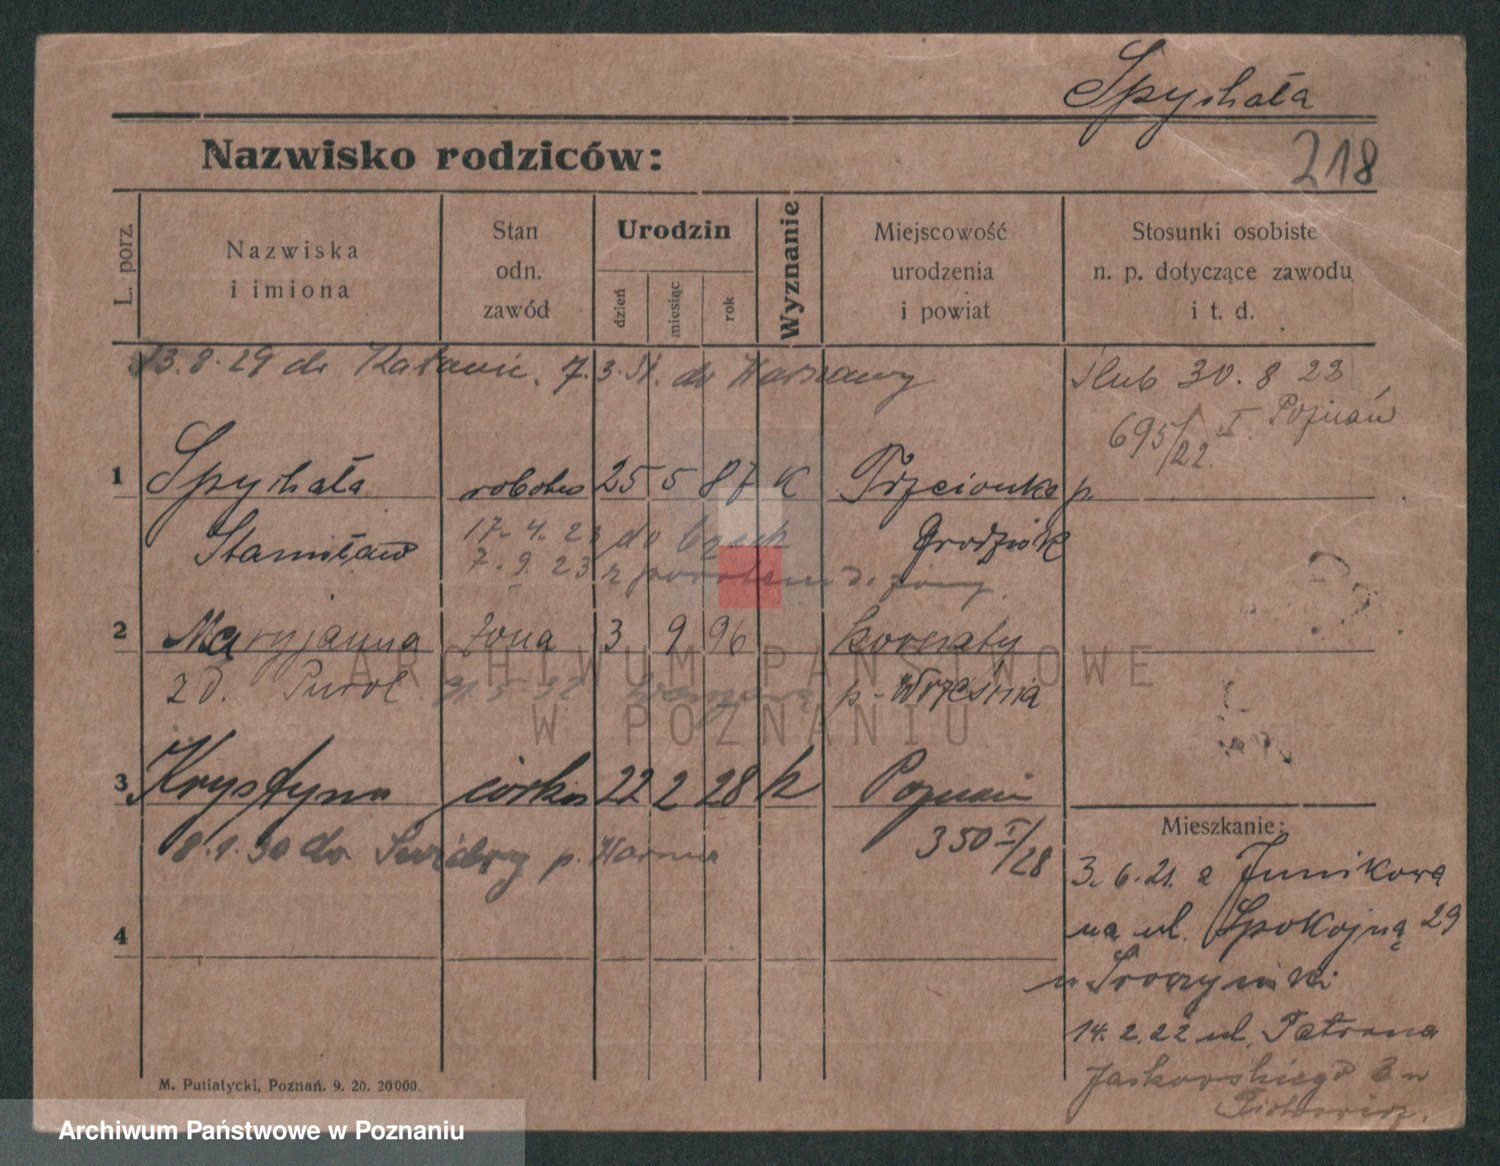 Spychała
218
Nazwisko rodziców:
L. porz.
Nazwiska
i imiona
Stan
odn.
zawód
Urodzin
dzień
miesiąc
rok
Wyznanie
Miejscowość
urodzenia
i powiat
Stosunki osobiste
n. p. dotyczące zawodu
i t. d.
13.8.29 do 7.3. do Warszawy
ślub 30.8 22
695/22. I Poznań
1 Spychała 25 5 87 K Trzcionka p.
Stanisław 17.4.23 do Grodzisk
7.9.23 z powrotem do żony.
2 Maryjanna żona 3 9 96
ARCHIWUM PAŃSTWOWE
z d. p. Września
W POZNANIU
3 Krystyna córka 22 2 28 k Poznań
350 I/28
8.1.30 do p.
4
Mieszkanie:
3.6.21. z Junikowa
na ul. Spokojną 29
u
14.2.22 ul. Patrona
Jackowskiego
M. Putiatycki, Poznań. 9. 20. 20000.
Archiwum Państwowe w Poznaniu